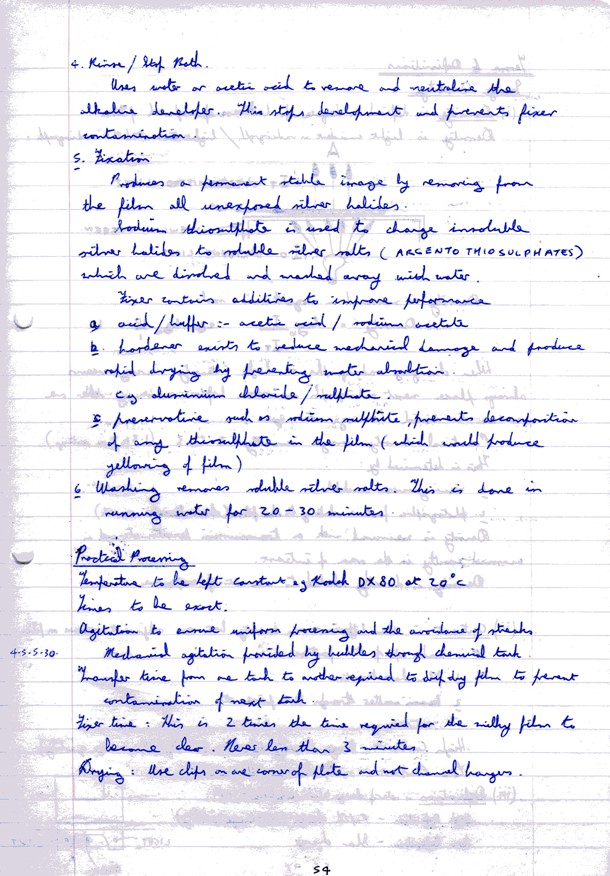 4. Rinse / Stop Bath.
Uses water or acetic acid to remove and neutralise the
alkaline developer. This stops development and prevents fixer
contamination.
5. Fixation
Produces a permanent stable image by removing from
the film all unexposed silver halides.
Sodium thiosulphate is used to change insoluble
silver halides to soluble silver salts (ARGENTO THIOSULPHATES)
which are disolved and washed away with water.
Fixer contains additives to improve performance
a acid/buffer :- acetic acid / sodium acetate
b. hardener exists to reduce mechanical damage and produce
rapid drying by preventing water absorbtion.
eg aluminium chloride / sulphate.
c preservative such as sodium sulphite, prevents decomposition
of any thiosulphate in the film (which would produce
yellowing of film)
6 Washing removes soluble silver salts. This is done in
running water for 20-30 minutes.
Practical Processing
Temperature to be kept constant eg Kodak DX80 at 20°C
Times to be exact.
Agitation to ensure uniform processing and the avoidance of streaks
4-5-5-30. Mechanical agitation provided by bubbles through chemical tank.
Transfer time from one tank to another required to drip dry film to prevent
contamination of next tank.
Fixer time : This is 2 times the time required for the milky film to
become clear. Never less than 3 minutes.
Drying : Use clips on one corner of plate and not channel hangers.
54